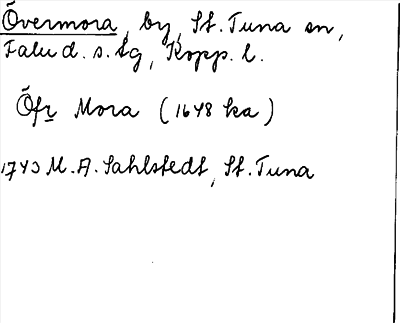 Övermora, by, St. Tuna sn,
Falu d. s. tg, Kopp. l.
Öfr Mora (1648 ka)
1743 M. A. Sahlstedt, St. Tuna